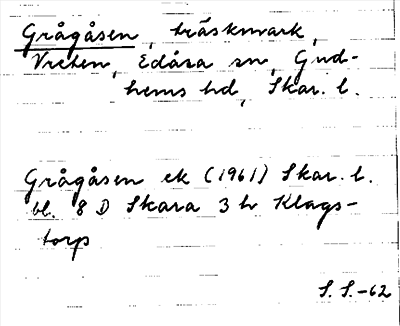 Grågåsen, träskmark,
Vreten, Edåsa sn, Gud-
hems hd, Skar. l.
Grågåsen ek (1961) Skar. l.
bl. 8 D Skara 3 h Klags-
torp
S. S.-62